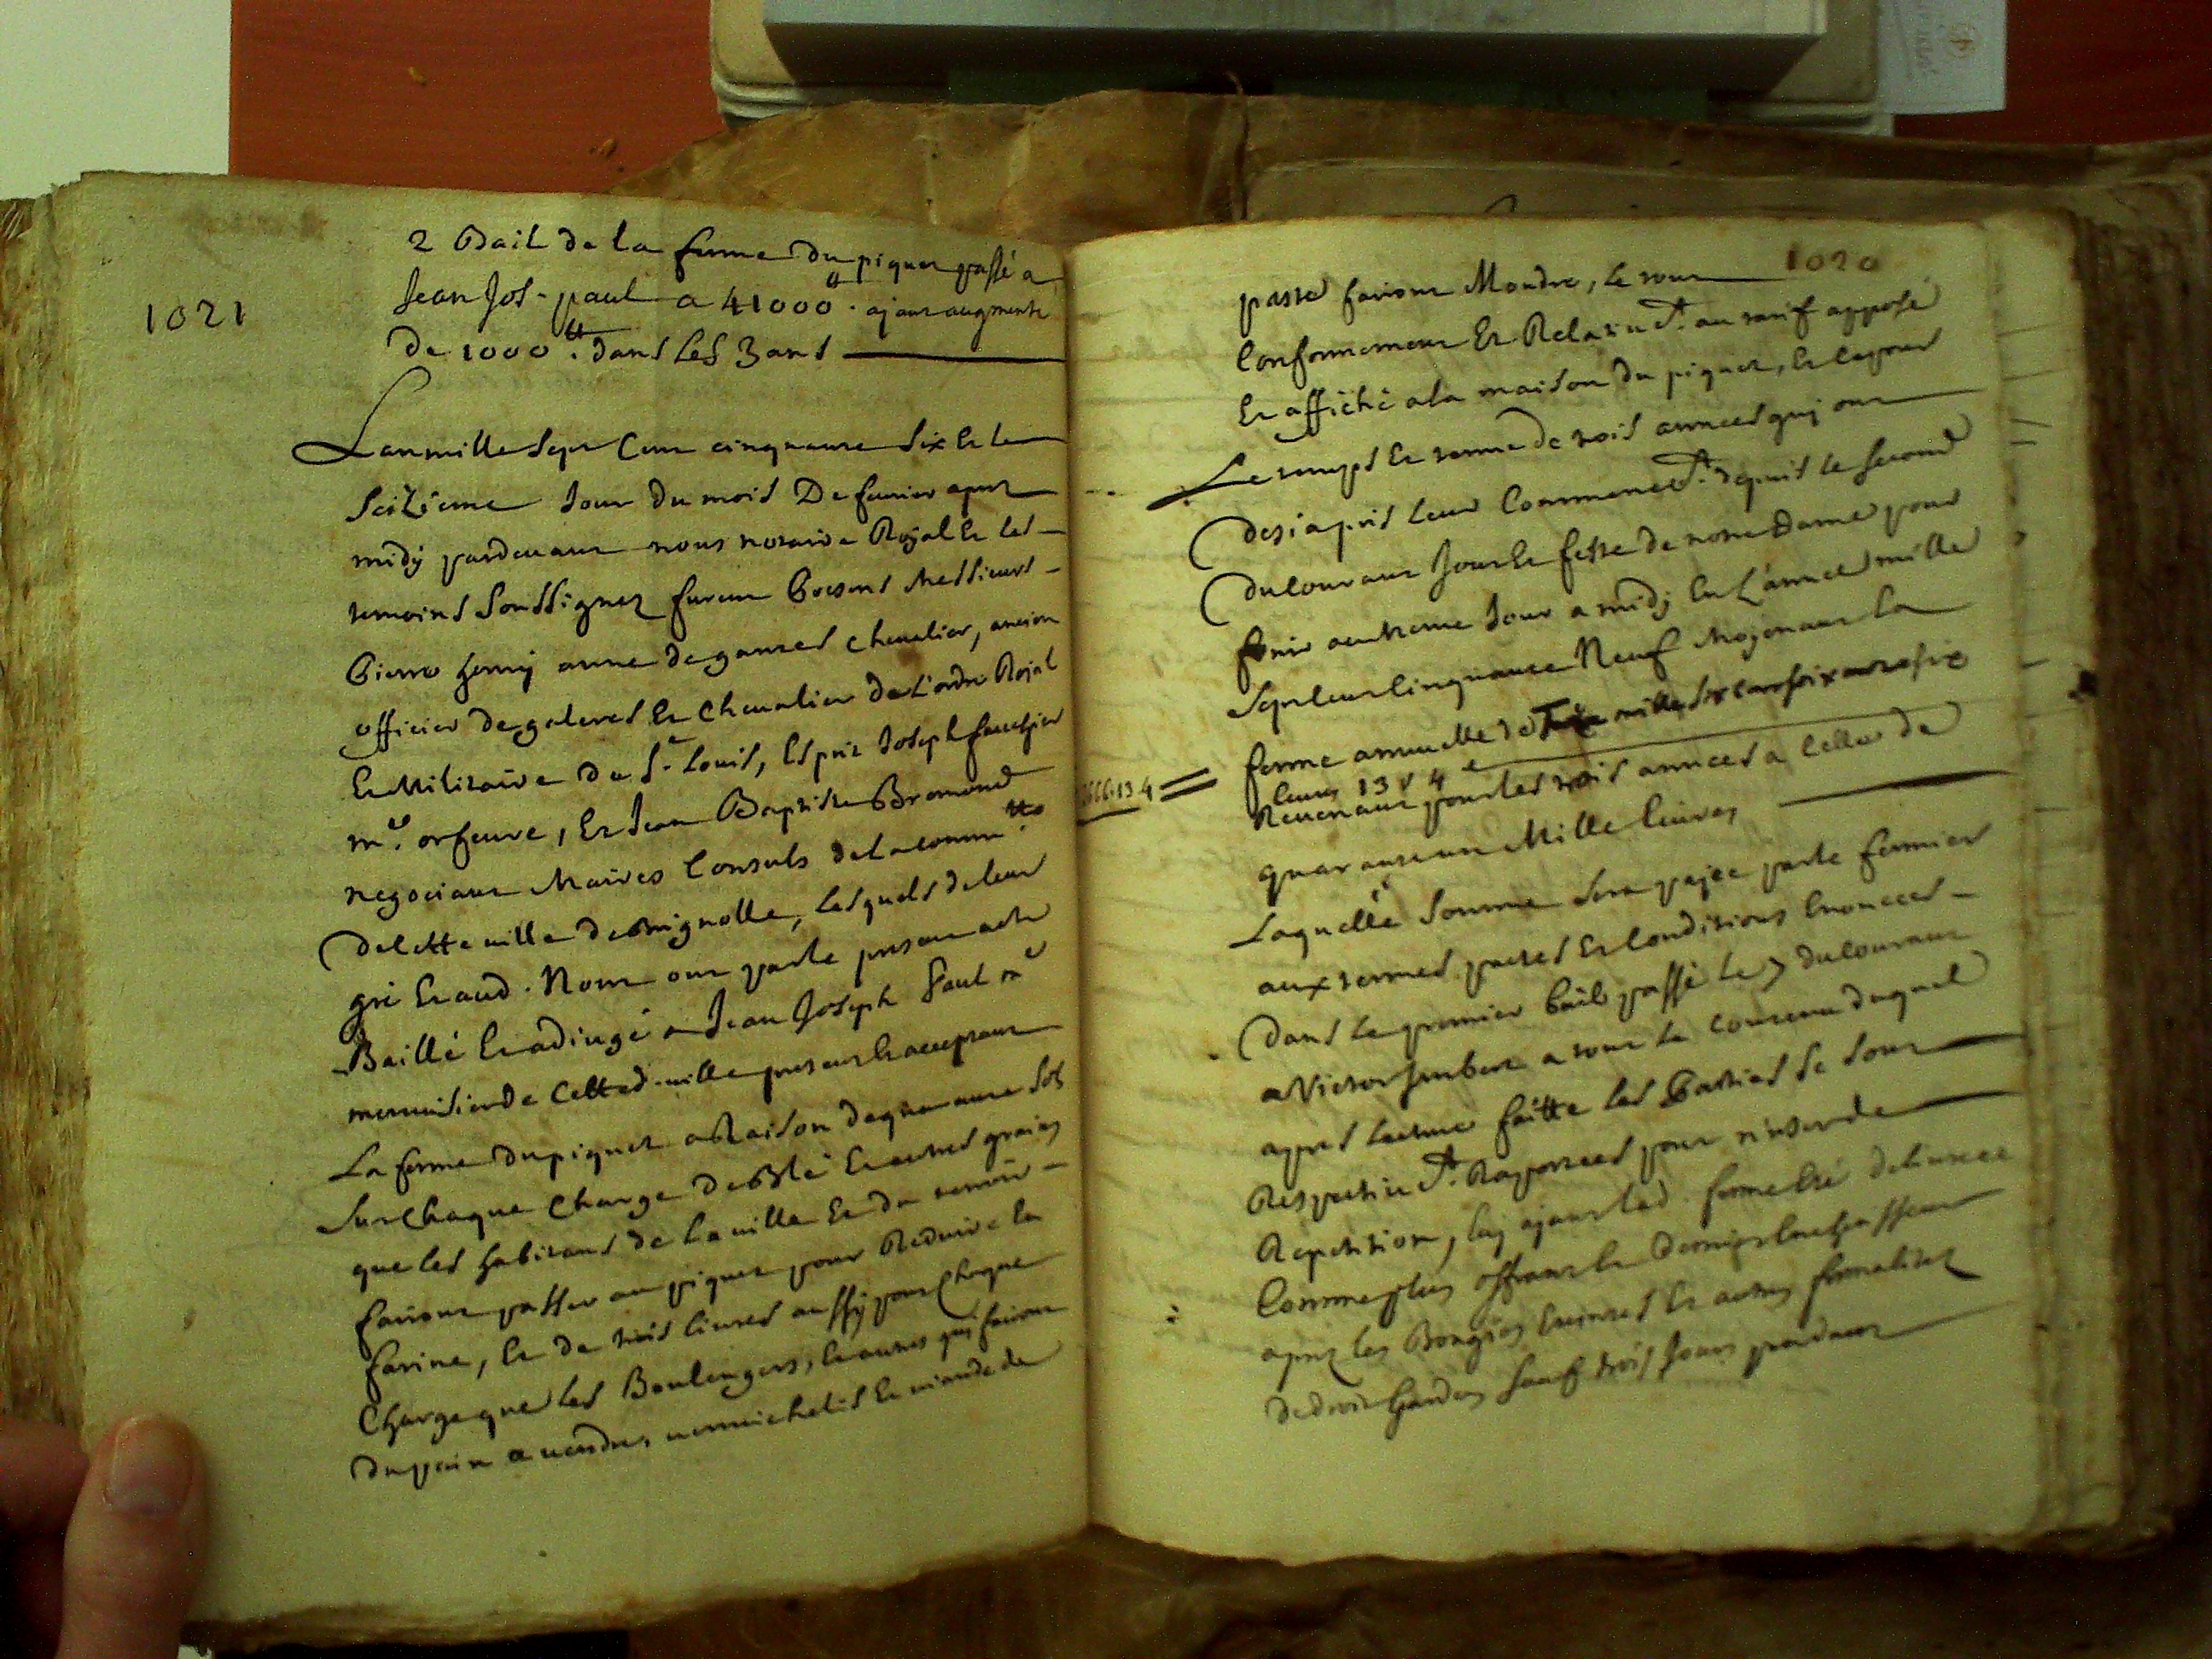 1021
2 Bail de la ferme du piquet passé a
Jean Jos. paul a 41000ᵗᵗ. ajant augmenté
de 1000ᵗᵗ. dans les 3 ans
Lan mille sept cent cinquante six et le
seiziéme jour du mois De feurier apres
midÿ pardeuant nous notaire Royal et les
temoins soussignez furent presens Messieurs
Pierre henrÿ anne de gantes cheualier, ancien
officier de galeres et cheualier de L'ordre Royal
et Militaire de Sᵗ Louis, Esprit Joseph
mᵉ. orfeure, et Jean Baptiste Bremond
negociant Maires Consuls de la commᵗᵉ
de cette uille de Brignolle, lesquels de leur
gré et aud. Nom ont par le present acte
Baillé et adiugé a Jean Joseph Paul mᵉ
menuisier de cette d. uille present et acceptant
La ferme du piquet a Raison de quarante sols
sur chaque charge de Blé et autres grains
que les habitans de La uille et du terroir
fairont passer au piquet pour Reduire en
farine, et de trois liures aussy pour chaque
Charge que les Boulengers, et autres qui fairont
du pain a uendre, uermichelis et uiande de
1020
paste fairont Moudre, le tout
Conformement Et Relatiueᵗ. au tarif apposé
Et affiché a la maison du piquet, Et ce pour
Le temps et terme de trois années qui ont
desia pris leur Commenceᵗ. depuis le second
du courant Jour et feste de notre Dame pour
finir au meme Jour a midÿ en L'année mille
Sept cent cinquante Neuf Moyenant La
ferme annuelle de Treize mille six cent soixante six
liures 13 s 4 ᵈ
666.13.4
Reuenant pour les trois années a Celle de
quarante un Mille liures
Laquelle somme sera payée par le fermier
aux termes pactes et conditions Enoncees
Dans Le premier bail passé le 7 du courant
a Victor Jmbert a tout le contenu duquel
apres lecture faitte les Parties se sont
Respectiueᵗ. Raportees pour n'user de
Repetition, luy ayant lad. ferme Eté deliurée
Comme plus offrant et dernier encherisseur
apres les Bougies Eteintes et autres formalitez
de droit Gardees sauf trois jours pendant